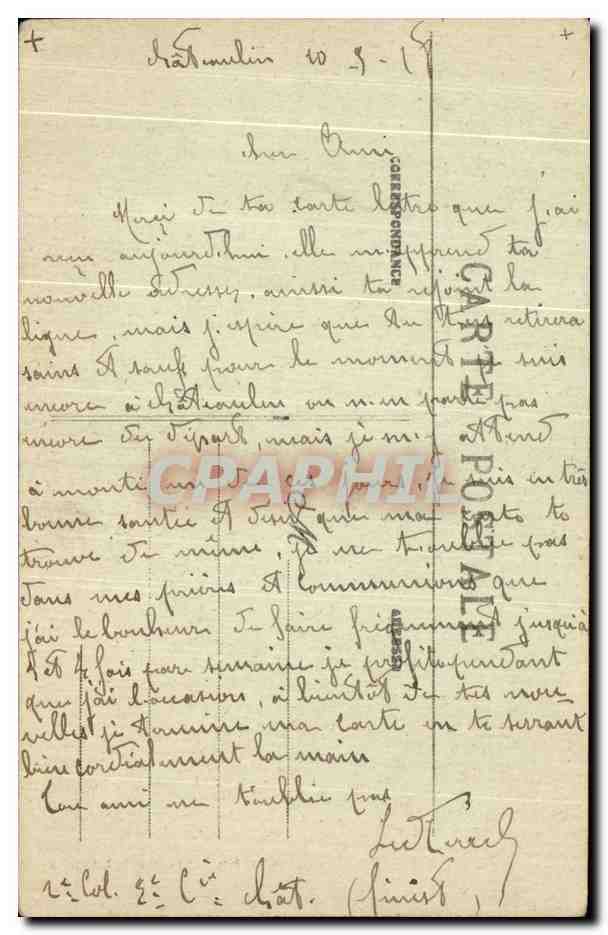 Châteaulin 10 - 5 - 15
cher Ami
Merçi de ta carte lettre que j'ai
reçu aujourd'hui. elle m'apprend ta
nouvelle adresse, ainsi ta rejoint la
ligne, mais j'espère que tu t'en retirera
sains et saufs pour le moment je suis
encore à Châteaulin on n'en parle pas
encore du départ, mais je m'y attend
à monté un de ces jours, je suis en très
bonne santée et desir que ma carte te
trouve de même, je ne t'oublie pas
dans mes prières et communions que
j'ai le bonheur de faire fréquemment jusqu'à
3 et 4 fois par semaine je profite pendant
que j'ai l'occasion, à bientôt de tes nou-
velles je termine ma carte en te serrant
bien cordialement la main
Ton ami ne t'oublie pas
2e Col. 2e Cie Chât. (finist)
CORRESPONDANCE
CARTE POSTALE
ADRESSE
M
CPAPHIL